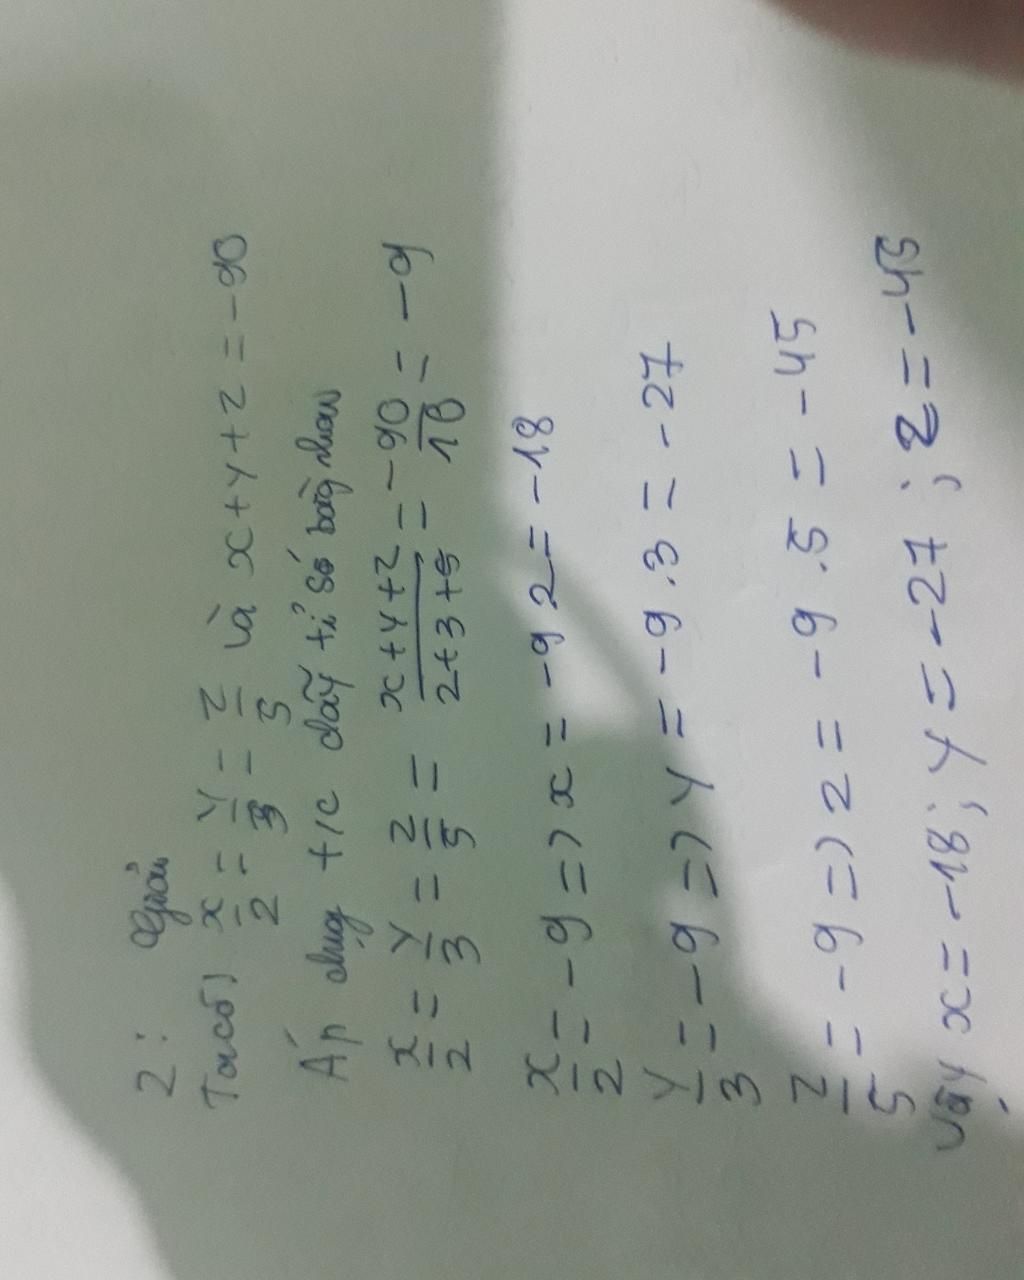 2: Giải
Ta có) x/2 = y/3 = z/5 và x+y+z=-90
Áp dụg t/c dãy tỉ số bằg nhau
x/2 = y/3 = z/5 = x+y+z/2+3+5 = -90/10 = -9
x/2 = -9 => x = -9 2 = -18
y/3 = -9 => y = -9.3 = -27
z/5 = -9 => z = -9.5 = -45
Vậy x=-18; y=-27; z=-45